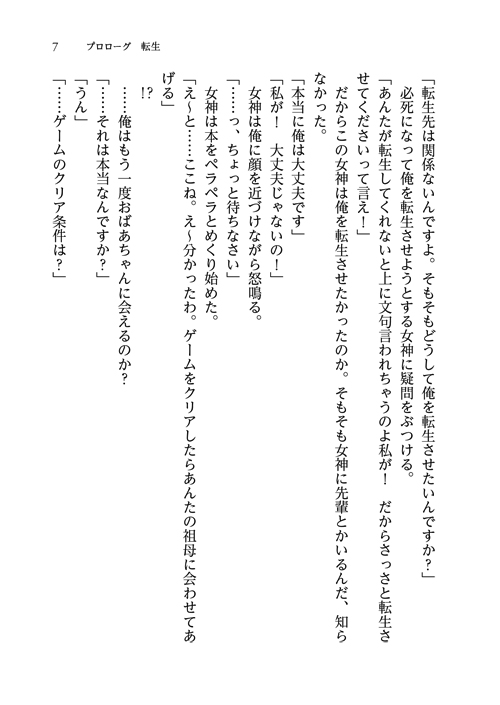 7　プロローグ　転生
「転生先は関係ないんですよ。そもそもどうして俺を転生させたいんですか？」
　必死になって俺を転生させようとする女神に疑問をぶつける。
「あんたが転生してくれないと上に文句言われちゃうのよ私が！　だからさっさと転生さ
せてくださいって言え！」
　だからこの女神は俺を転生させたかったのか。そもそも女神に先輩とかいるんだ、知ら
なかった。
「本当に俺は大丈夫です」
「私が！　大丈夫じゃないの！」
　女神は俺に顔を近づけながら怒鳴る。
「……っ、ちょっと待ちなさい」
　女神は本をペラペラとめくり始めた。
「え～と……ここね。え～分かったわ。ゲームをクリアしたらあんたの祖母に会わせてあ
げる」
　!?
　……俺はもう一度おばあちゃんに会えるのか？
「……それは本当なんですか？」
「うん」
「……ゲームのクリア条件は？」